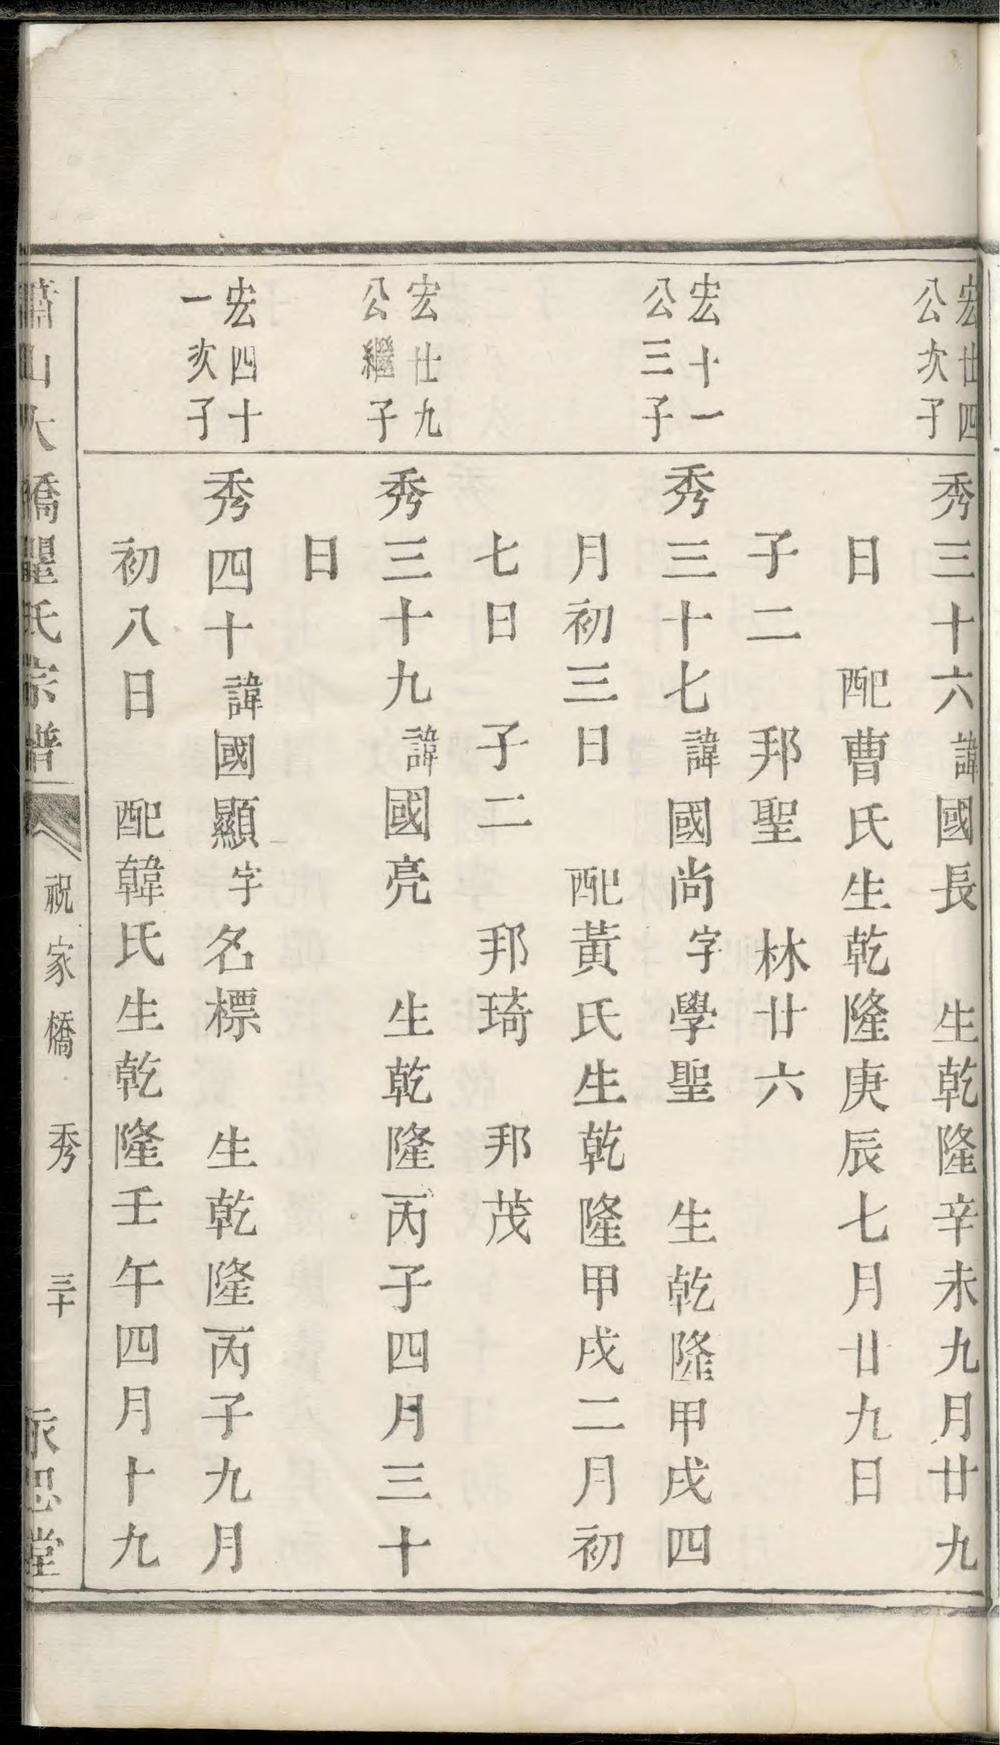 宏廿四
公次子
秀三十六諱國長　生乾隆辛未九月廿九
日　配曹氏生乾隆庚辰七月廿九日
子二　邦聖　林廿六
宏十一
公三子
秀三十七諱國尚字學聖　生乾隆甲戌四
月初三日　配黃氏生乾隆甲戌二月初
七日　子二　邦琦　邦茂
宏廿九
公繼子
秀三十九諱國亮　生乾隆丙子四月三十
日
宏四十
一次子
秀四十諱國顯字名標　生乾隆丙子九月
初八日　配韓氏生乾隆壬午四月十九
蕭山大橋瞿氏宗譜　祝家橋　秀　三十　思堂